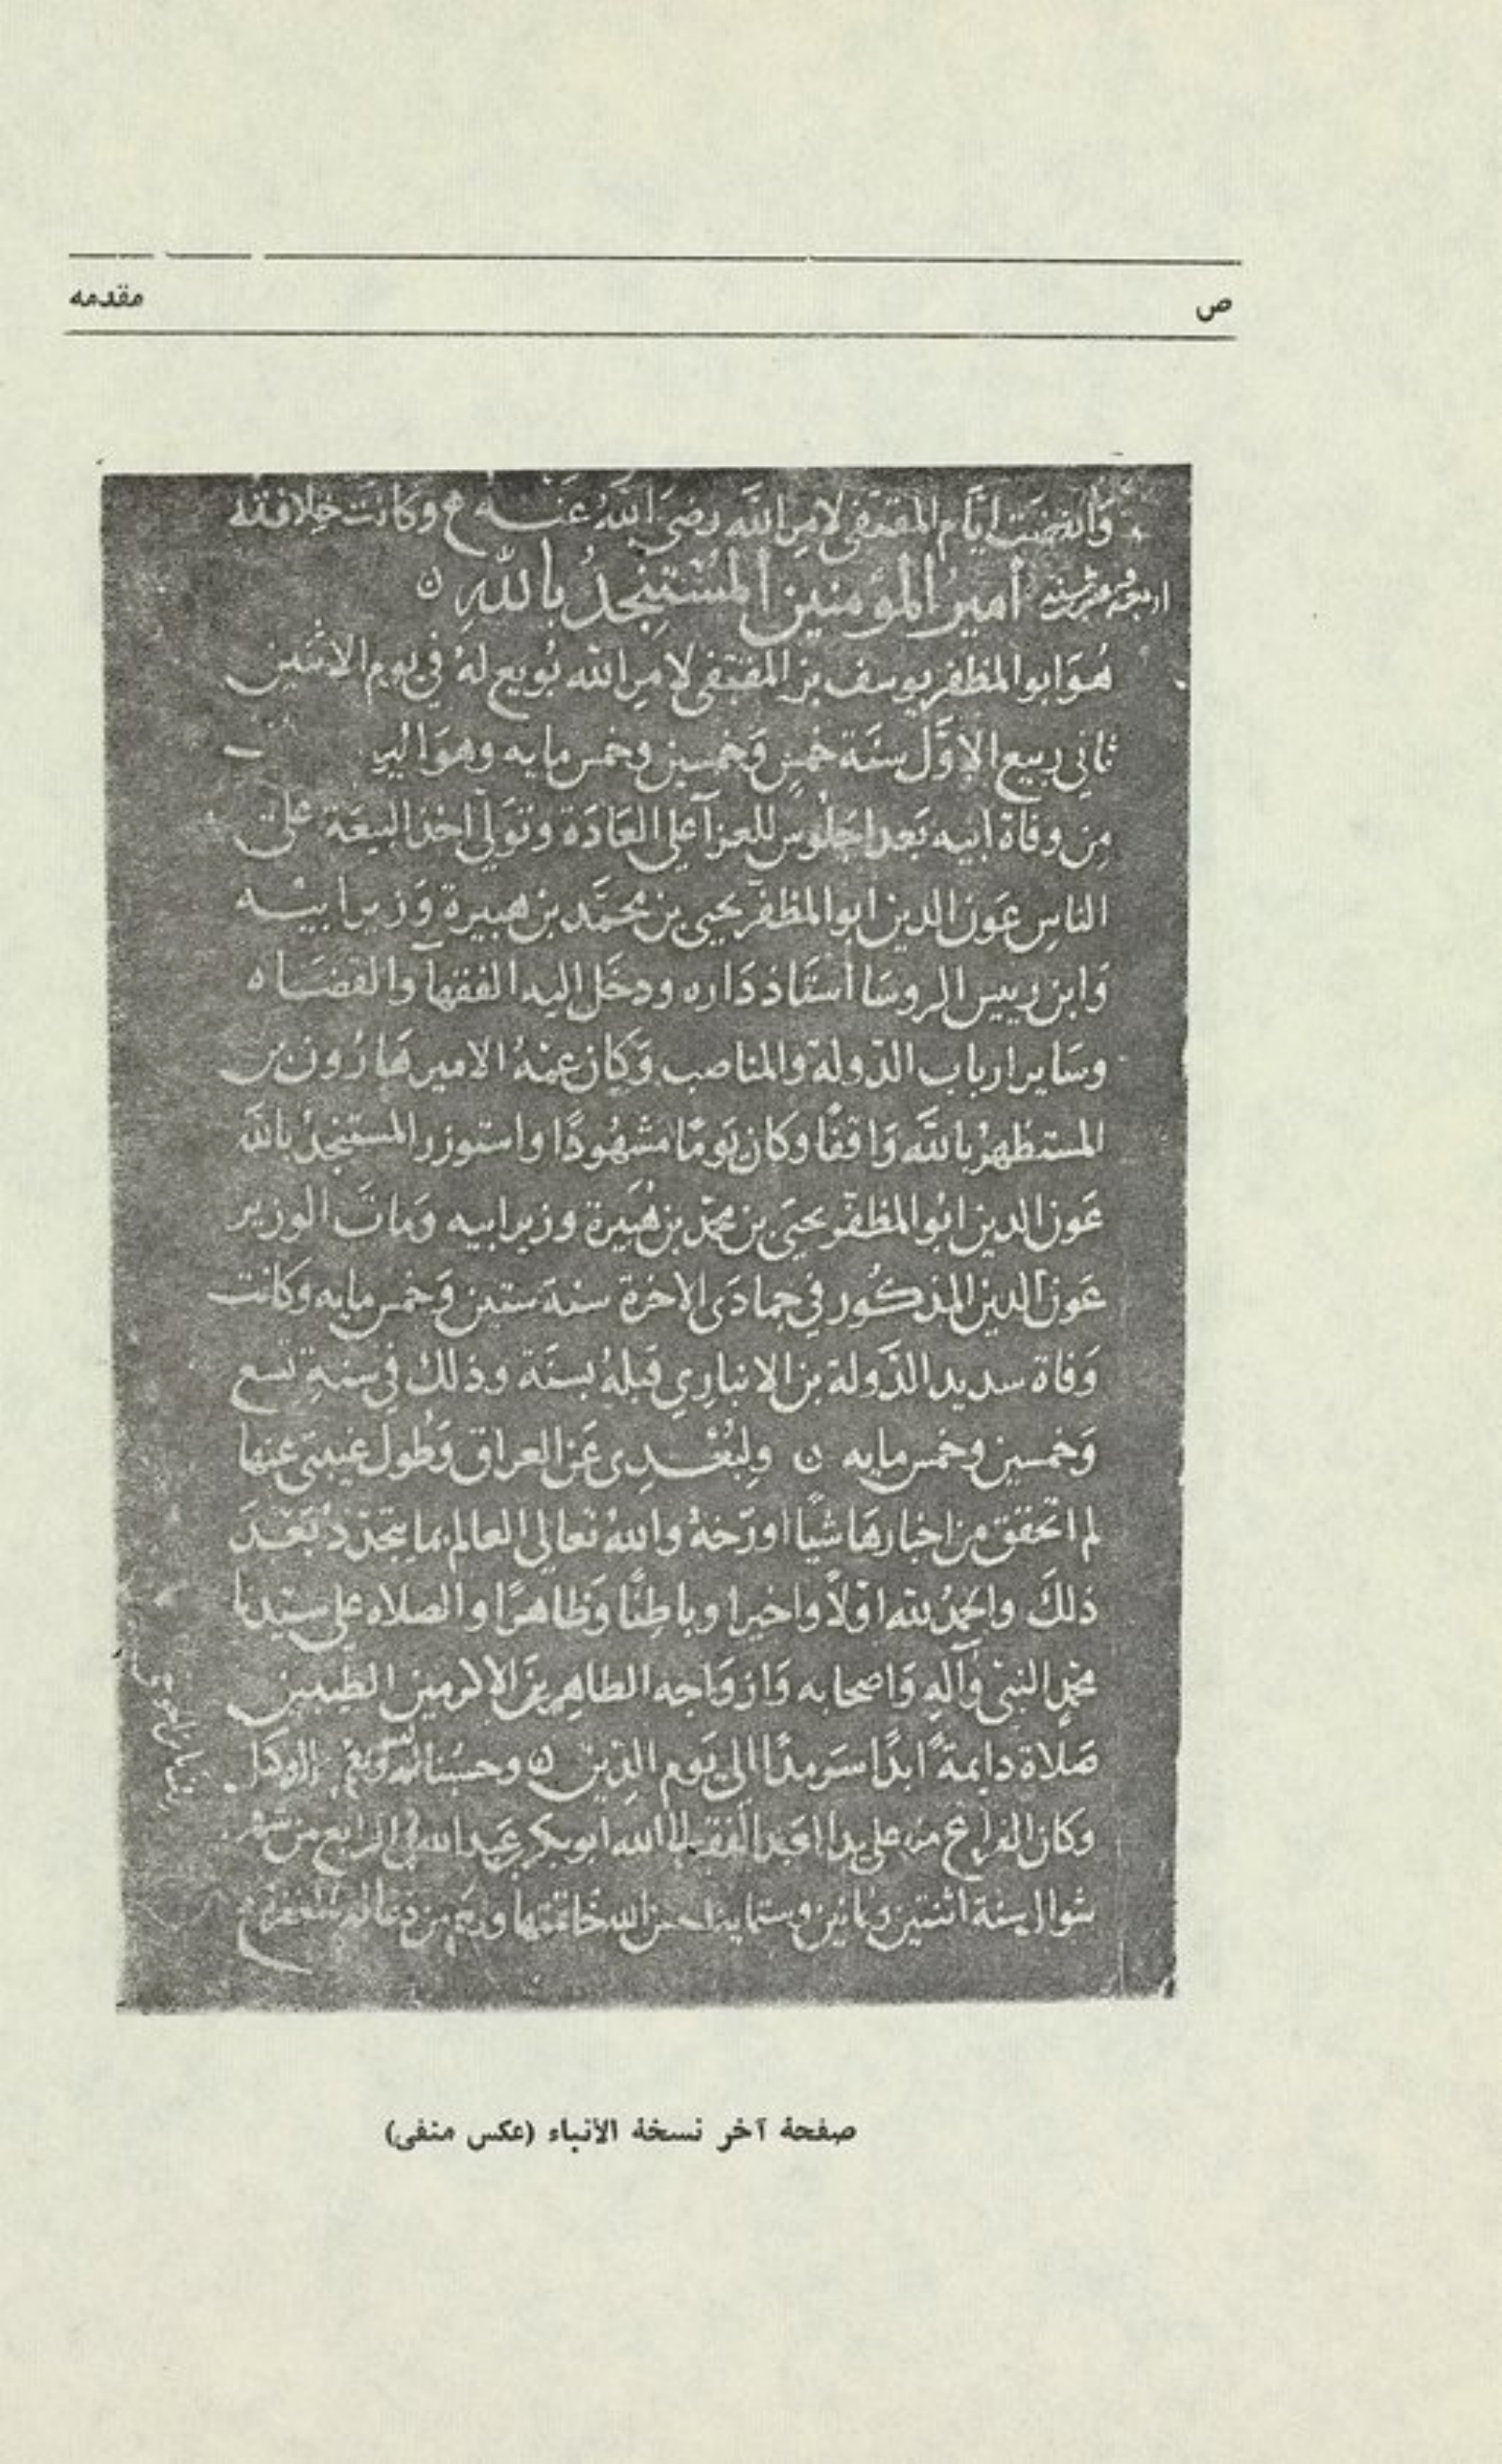 ص
مقدمه
وَانقضت ايّام المقتفى لامر الله رضى الله عنه وكانت خلافته
اربعة وعشرين سنه امير المؤمنين المستنجد بالله
هو ابو المظفر يوسف بن المقتفى لامر الله بُويع له فى يوم الاثنين
ثانى ربيع الاوّل سنة خمس وخمسين وخمس مايه وهو
من وفاة ابيه بعد الجلوس للعزآ على العَادَة وتولى اخذ البيعة على
الناس عَون الدين ابو المظفر يحيى بن محمّد بن هبيرة وَزير ابيه
وَابن رييس الروسَا استاذ دَاره ودخل اليه الفقهآ والقضَاه
وسَاير ارباب الدّولة والمناصب وَكان عمّهُ الامير هَارُون بن
المستظهر بالله وَاقفًا وكان يَومًا مشهُودًا واستوزر المستنجدُ بالله
عَون الدين ابُو المظفّر يحيَى بن محمّد بن هُبَيرة وزير ابيه وَماتَ الوزير
عَون الدين المذكُور فى جمادَى الاخرة سنة ستين وَخمس مايه وكانت
وَفاة سديد الدّولة بن الانبارى قبلهُ بسنَة وذلك فى سنة تسع
وَخمسين وخمس مايه ن ولبُعْدِى عَن العراق وَطُول غيبتى عنها
لم اتحقق من اخبارهَا شيًا اورّخهُ واللهُ تعالى العالم بما يتجدّدُ بَعْدَ
ذلكَ والحمدُ لله اوّلاً واخيرا وباطِنًا وَظاهرًا والصلاه على سيّدنا
محمدٍ النبىّ وَآلهِ وَاصحابه وَازوَاجه الطاهرين الاكرمين الطيبين
صَلاة دايمةً ابدًا سَرمدًا الى يَوم الدّين ن وحسبُنا الله ونعم الوكيل
وكان الفراغ منه على يد العبد الفقير الى الله ابو بكر عبد الله فى الرابع من شهر
شوال سنة اثنتين وثمانين وستمايه احسن الله خاتمتها ورحم من دعا له بالمغفرة
صفحهٔ آخر نسخهٔ الأنباء (عكس منفى)